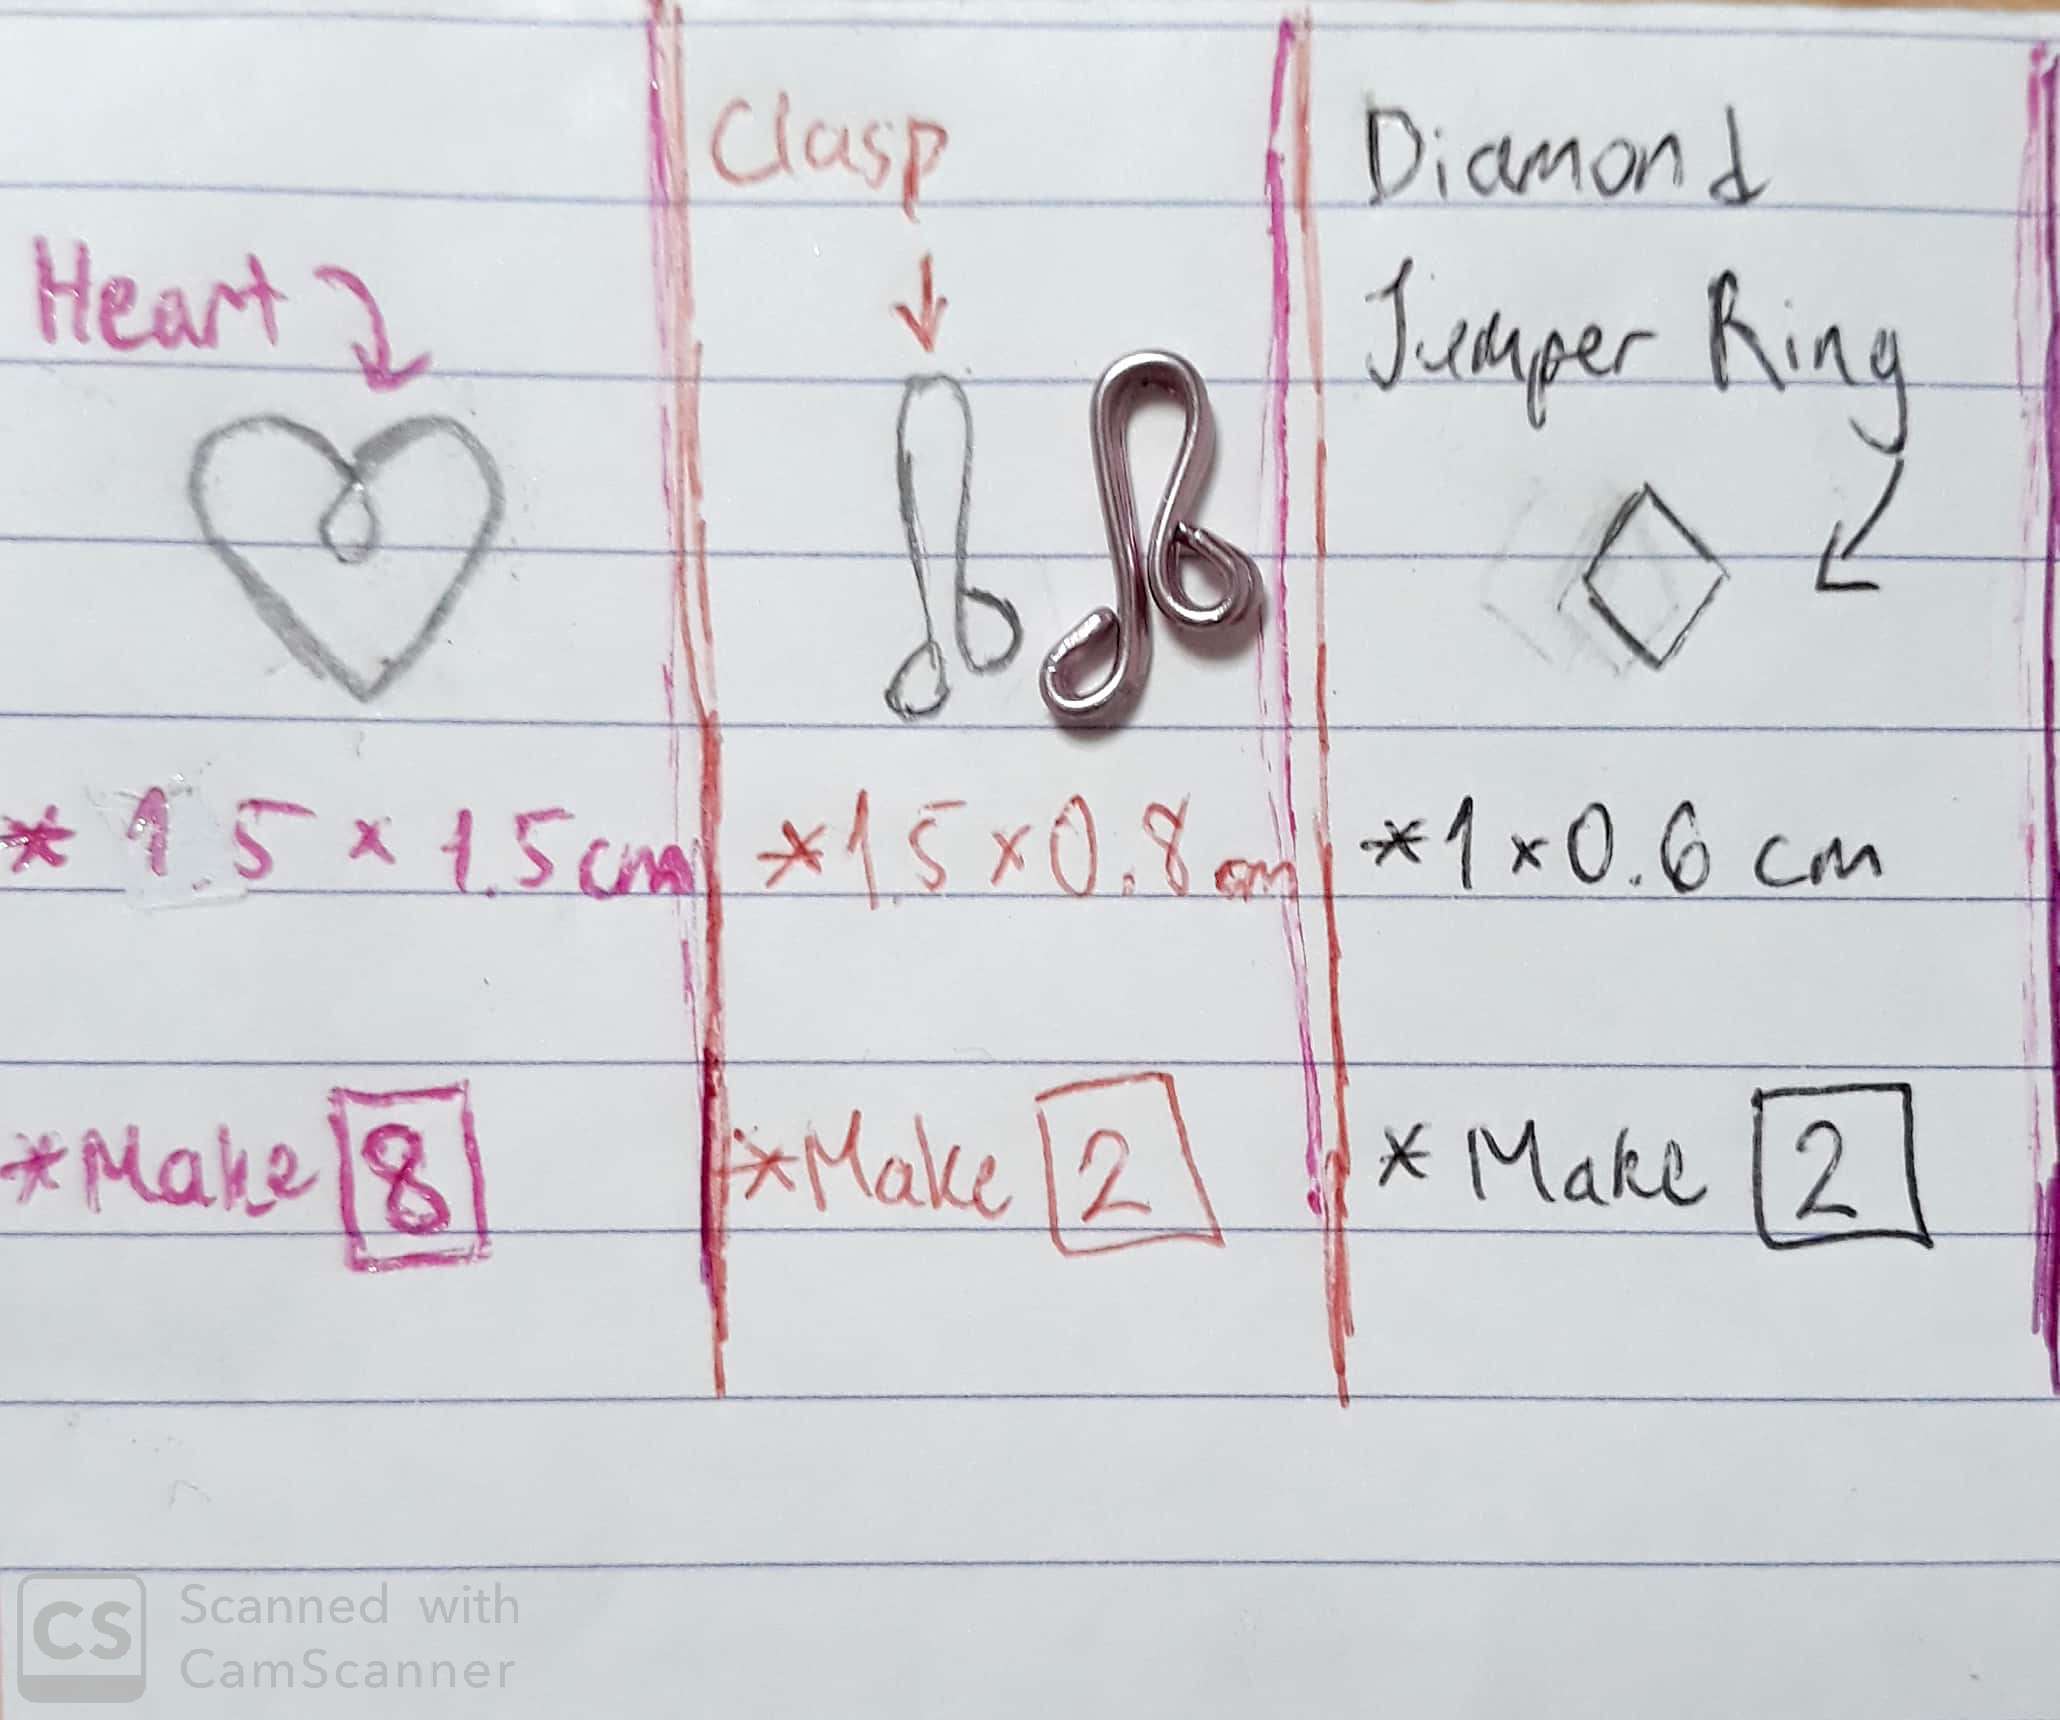 Heart
* 1.5 × 1.5 cm
*Make 8
Clasp
*1.5 × 0.8 cm
*Make 2
Diamond
Jumper Ring
*1 × 0.6 cm
* Make 2
CS Scanned with
CamScanner